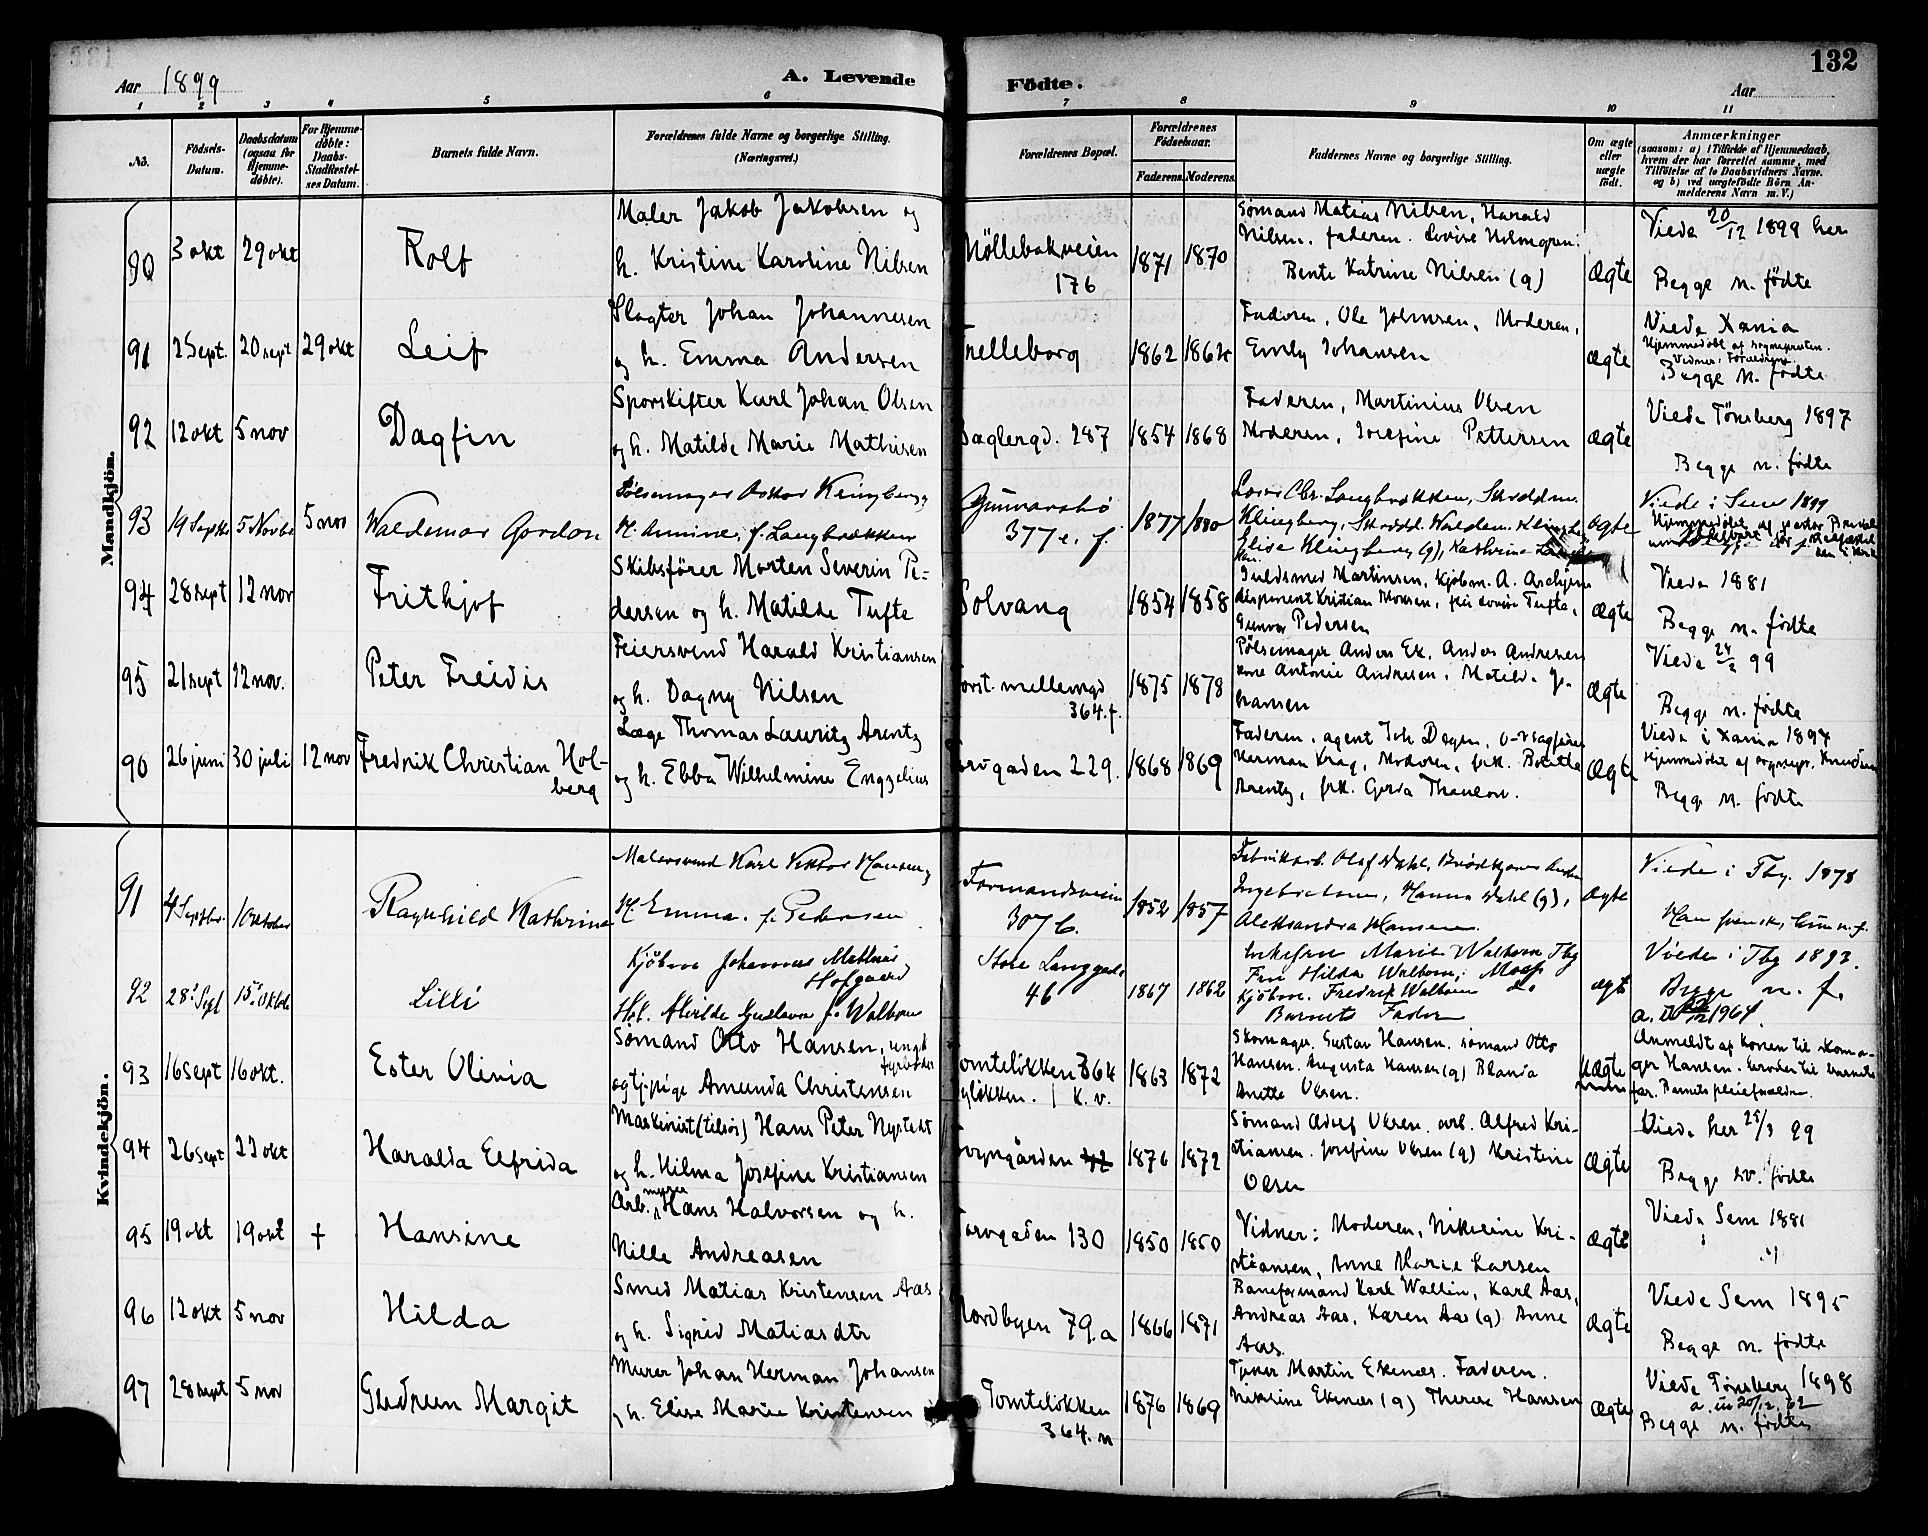 132
Aar 1899
A. Levende
Födte.
Aar
1 2 3 4 5 6 7 8 9 10 11
No.
Födsels-
Datum.
Daabsdatum
(ogsaa for
Hjemme-
døbte).
For Hjemme-
døbte:
Daabs-
Stadfæstel-
ses Datum.
Barnets fulde Navn.
Forældrenes fulde Navne og borgerlige Stilling.
(Næringsvei.)
Forældrenes Bopæl.
Forældrenes
Fødselsaar.
Faderens. Moderens.
Faddernes Navne og borgerlige Stilling.
Om ægte
eller
uægte
født.
Anmærkninger
(saasom: a) i Tilfælde af Hjemmedaab,
hvem der har forrettet samme, med
Tilføielse af to Daabsvidners Navne.
og b) ved uægtefødte Börn An-
melderens Navn m. V.)
Mandkjön.
90
3 okt
29 okt
Rolf
Maler Jakob Jakobsen og
h. Kristine Karoline Nilsen
Möllebakveien
176
1871
1870
Sømand Matias Nilsen, Harald
Nilsen, faderen. Lovise Holmgren.
Bente Katrine Nilsen (g)
Ægte
Viede 20/12 1899 her
Begge n. födte
91
2 Sept.
20 sept
29 okt
Leif
Slagter Johan Johannesen
og h. Emma Andersen
Trelleborg
1862
1864
Faderen, Ole Johnsen, Moderen,
Emly Johansen
ægte
Viede Xania
Hjemmedöbt af sognepresten.
Vidner: Forældrene.
Begge n. födte
92
12 okt
5 nov
Dagfin
Sporskifter Karl Johan Olsen
og h. Matilde Marie Mathisen
Baglergd. 287
1854
1868
Faderen, Martinius Olsen
Moderen, Josefine Pettersen
ægte
Viede Tönsberg 1897
Begge n. födte
93
19 Septbr
5 Novbr
5 nov
Waldemar Gordon
Pölsemager Oskar Klingberg
H. Annine, f. Langbrækken
Gunnarsbö
377 e. f.
1877
1880
Klingberg,
Elise Klingberg (g), Kathrine
ægte
Viede i Sem 1899
94
28 sept
12 nov
Frithjof
Skibsförer Morten Severin Pe-
dersen og h. Matilde Tufte
Solvang
1854
1858
Guldsmed Martinsen, Kjöbm. A.
disponent Kristian Monsen, frk Lovise Tufte,
Gunvor Pedersen
ægte
Viede 1881
Begge n. födte
95
21 sept
12 nov.
Peter Freidis
Feiersvend Harald Kristiansen
og h. Dagny Nilsen
Forst. mellemgd
364. f.
1875
1878
Pölsemager Anders Ek, Anders Andresen
kone Antonie Andresen, Matilde Jo-
hansen
ægte
Viede 24/2 99
Begge n. födte
96
26 juni
30 juli
12 nov
Fredrik Christian Hol-
berg
Læge Thomas Lauritz Arentz
og h. Ebba Wilhelmine Engzelius
Torvgaden 229.
1868
1869
Faderen, agent Joh Degen, o-r sagförer
Herman Krag, Moderen, frk. Bolette
Arentz, frk. Gerda Thaulow.
Ægte
Viede i Xania 1894
Hjemmedöbt af sognepr. Knudsen
Begge n. födte
Kvindekjön.
91
4 Septbr.
1 Oktober
Ragnhild Kathrine
Malersvend Karl Viktor Hansen
H. Emma. f. Pedersen
Formandsveien
307 b.
1852
1857
Fabrikarb. Olaf Dahl,
Ingebretsen, Hanna Dahl (g),
Aleksandra Hansen.
ægte
Viede i Tbg. 1878
Han svensk, hun n. f.
92
28 Sept
15 Oktob
Lilli
Kjöbm Johannes Mathias
Hofgaard
H. Alvilde Gustava f. Walbom
Store Langgade
46
1867
1862
Enkefru Marie Walbom Tbg
Fru Hilda Walbom, Moss
Kjöbm. Fredrik Walbom do
Barnets Fader
ægte
Viede i Tbg 1893.
Begge n. f.
93
16 sept
16 okt.
Ester Olivia
Sømand Otto Hansen, ungk
fyrböder
og tjpige Amunda Christensen
Tomtelökken 364
1863
1872
Skomager Gustav Hansen. sömand Otto
Hansen. Augusta Hansen (g)
Anette Olsen.
uægte
Anmeldt af konen til skoma-
ger Hansen. broder til barnets
far. Barnets pleieforældre.
94
26 sept
22 okt
Haralda Elfrida
Maskinist (tilsjös) Hans Peter Nystedt
og h. Hilma Josefine Kristiansen
1876
1872
Sömand Adolf Olsen. arb. Alfred Kri-
stiansen. Josefine Olsen (g) Kristine
Olsen
ægte
Viede her 25/3 99
Begge sv. födte
95
19 okt
19 okt
†
Hansine
Arb. murer Hans Halvorsen og h.
Nille Andreasen
Torvgaden 130
1850
1850
Vidner: Moderen, Nikoline Kri-
stiansen, Anne Marie Larsen
ægte
Viede Sem 1881
96
12 okt
5 nov
Hilda
Smed Matias Kristensen Aas
og h. Sigrid Matiasdtr
Nordbyen 79. a
1866
1871
Baneformand Karl Wallin, Karl Aas,
Andreas Aas, Karen Aas (g) Anne
Aas.
ægte
Viede Sem 1895
Begge n. födte
97
28 sept
5 nov
Gudrun Margit
Murer Johan Herman Johansen
og h. Elise Marie Kristensen
Tomtelökken
364. n
1876
1869
Martin Ekenes. Faderen.
Nikoline Ekenes (g) Therese Hansen
ægte
Viede Tönsberg 1898
Begge n. födte